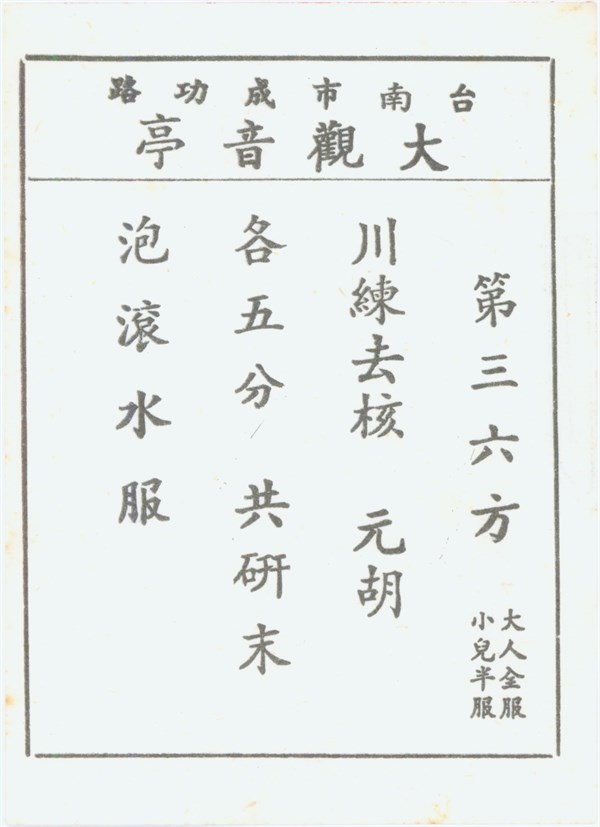 台南市成功路
大觀音亭
第三六方
大人全服
小兒半服
川練去核 元胡
各五分 共研末
泡滾水服